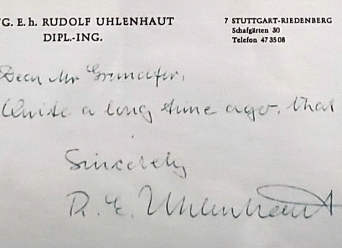 G. E. h. RUDOLF UHLENHAUT
DIPL.-ING.
7 STUTTGART-RIEDENBERG
Schafgärten 30
Telefon 47 35 08
Dear Mr
Quite a long time ago. that
Sincerely
R. E. Uhlenhaut